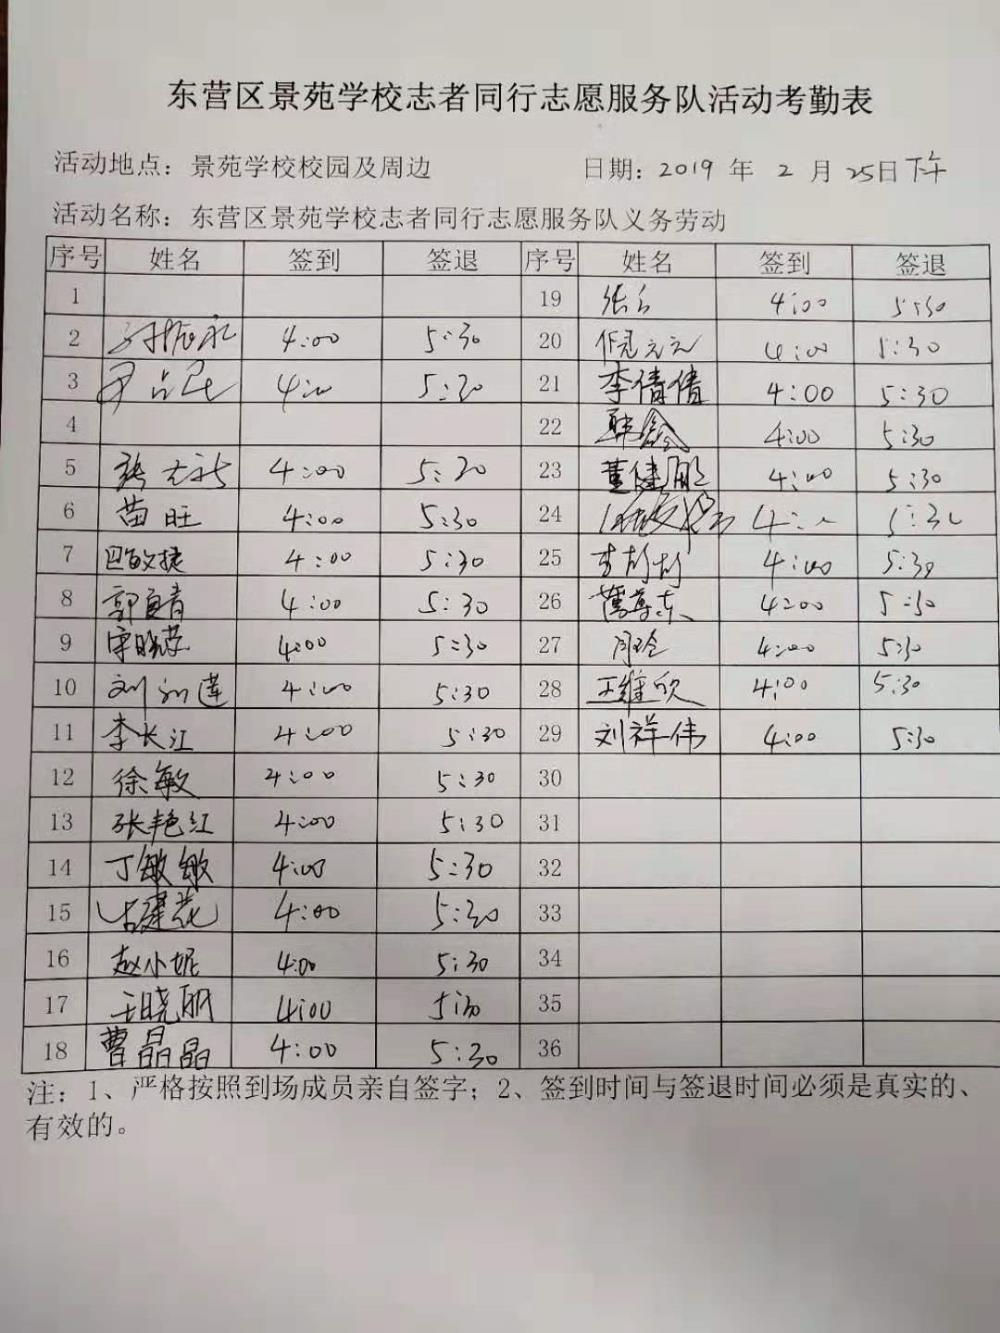 东营区景苑学校志者同行志愿服务队活动考勤表
活动地点：景苑学校校园及周边 日期：2019 年 2 月 25日下午
活动名称：东营区景苑学校志者同行志愿服务队义务劳动
序号 姓名 签到 签退 序号 姓名 签到 签退
1 19 4:00 5:30
2 4:00 5:30 20 4:00 5:30
3 4:00 5:30 21 李倩倩 4:00 5:30
4 22 韩鑫 4:00 5:30
5 4:00 5:30 23 董健鹏 4:00 5:30
6 苗旺 4:00 5:30 24 4:00 5:30
7 敏捷 4:00 5:30 25 4:00 5:30
8 郭良青 4:00 5:30 26 4:00 5:30
9 宋晓蓉 4:00 5:30 27 周玲 4:00 5:30
10 刘利莲 4:00 5:30 28 王维欣 4:00 5:30
11 李长江 4:00 5:30 29 刘祥伟 4:00 5:30
12 徐敏 4:00 5:30 30
13 张艳红 4:00 5:30 31
14 丁敏敏 4:00 5:30 32
15 古建花 4:00 5:30 33
16 赵小妮 4:00 5:30 34
17 王晓丽 4:00 5:30 35
18 曹晶晶 4:00 5:30 36
注：1、严格按照到场成员亲自签字；2、签到时间与签退时间必须是真实的、
有效的。